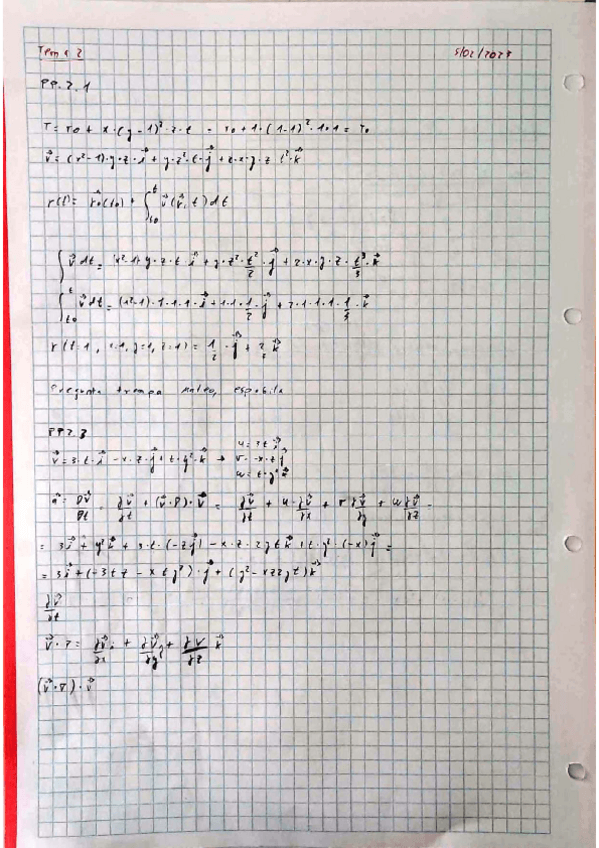 Tema 2
5/02/2023
PP.2.1
T = T0 + x·(y-1)²·z·t = T0 + 1·(1-1)²·1·1 = T0
v⃗ = (x²-1)·y·z·i⃗ + y·z²·t·j⃗ + 2·x·y·z t²·k⃗
r(t) = r⃗0(t0) + ∫_{t0}^{t} v⃗(r⃗, t) dt
∫ v⃗ dt = (x²-1) y·z·t i⃗ + y·z²·t²/2·j⃗ + 2·x·y·z·t³/3·k⃗
∫_{t0}^{t} v⃗ dt = (1²-1)·1·1·1·i⃗ + 1·1·1/2·j⃗ + 2·1·1·1·1/3·k⃗
r(t=1, x=1, y=1, z=1) = 1/2·j⃗ + 2/3 k⃗
Pregunta trampa
PP2.3
v⃗ = 3·t·i⃗ - x·z·j⃗ + t·y²·k⃗ →
u = 3t i⃗
v = -x·z j⃗
w = t·y² k⃗
a⃗ = Dv⃗/Dt = ∂v⃗/∂t + (v⃗·∇)·v⃗ = ∂v⃗/∂t + u·∂v⃗/∂x + v ∂v⃗/∂y + w ∂v⃗/∂z =
= 3i⃗ + y²k⃗ + 3·t·(-z j⃗) - x·z·2y t k⃗ + t·y²·(-x) j⃗ =
= 3i⃗ + (-3tz - x t y²)·j⃗ + (y² - xz2yt) k⃗
∂v⃗/∂t
v⃗·∇ = ∂v⃗/∂x i + ∂v⃗/∂y j + ∂v/∂z k⃗
(v⃗·∇)·v⃗